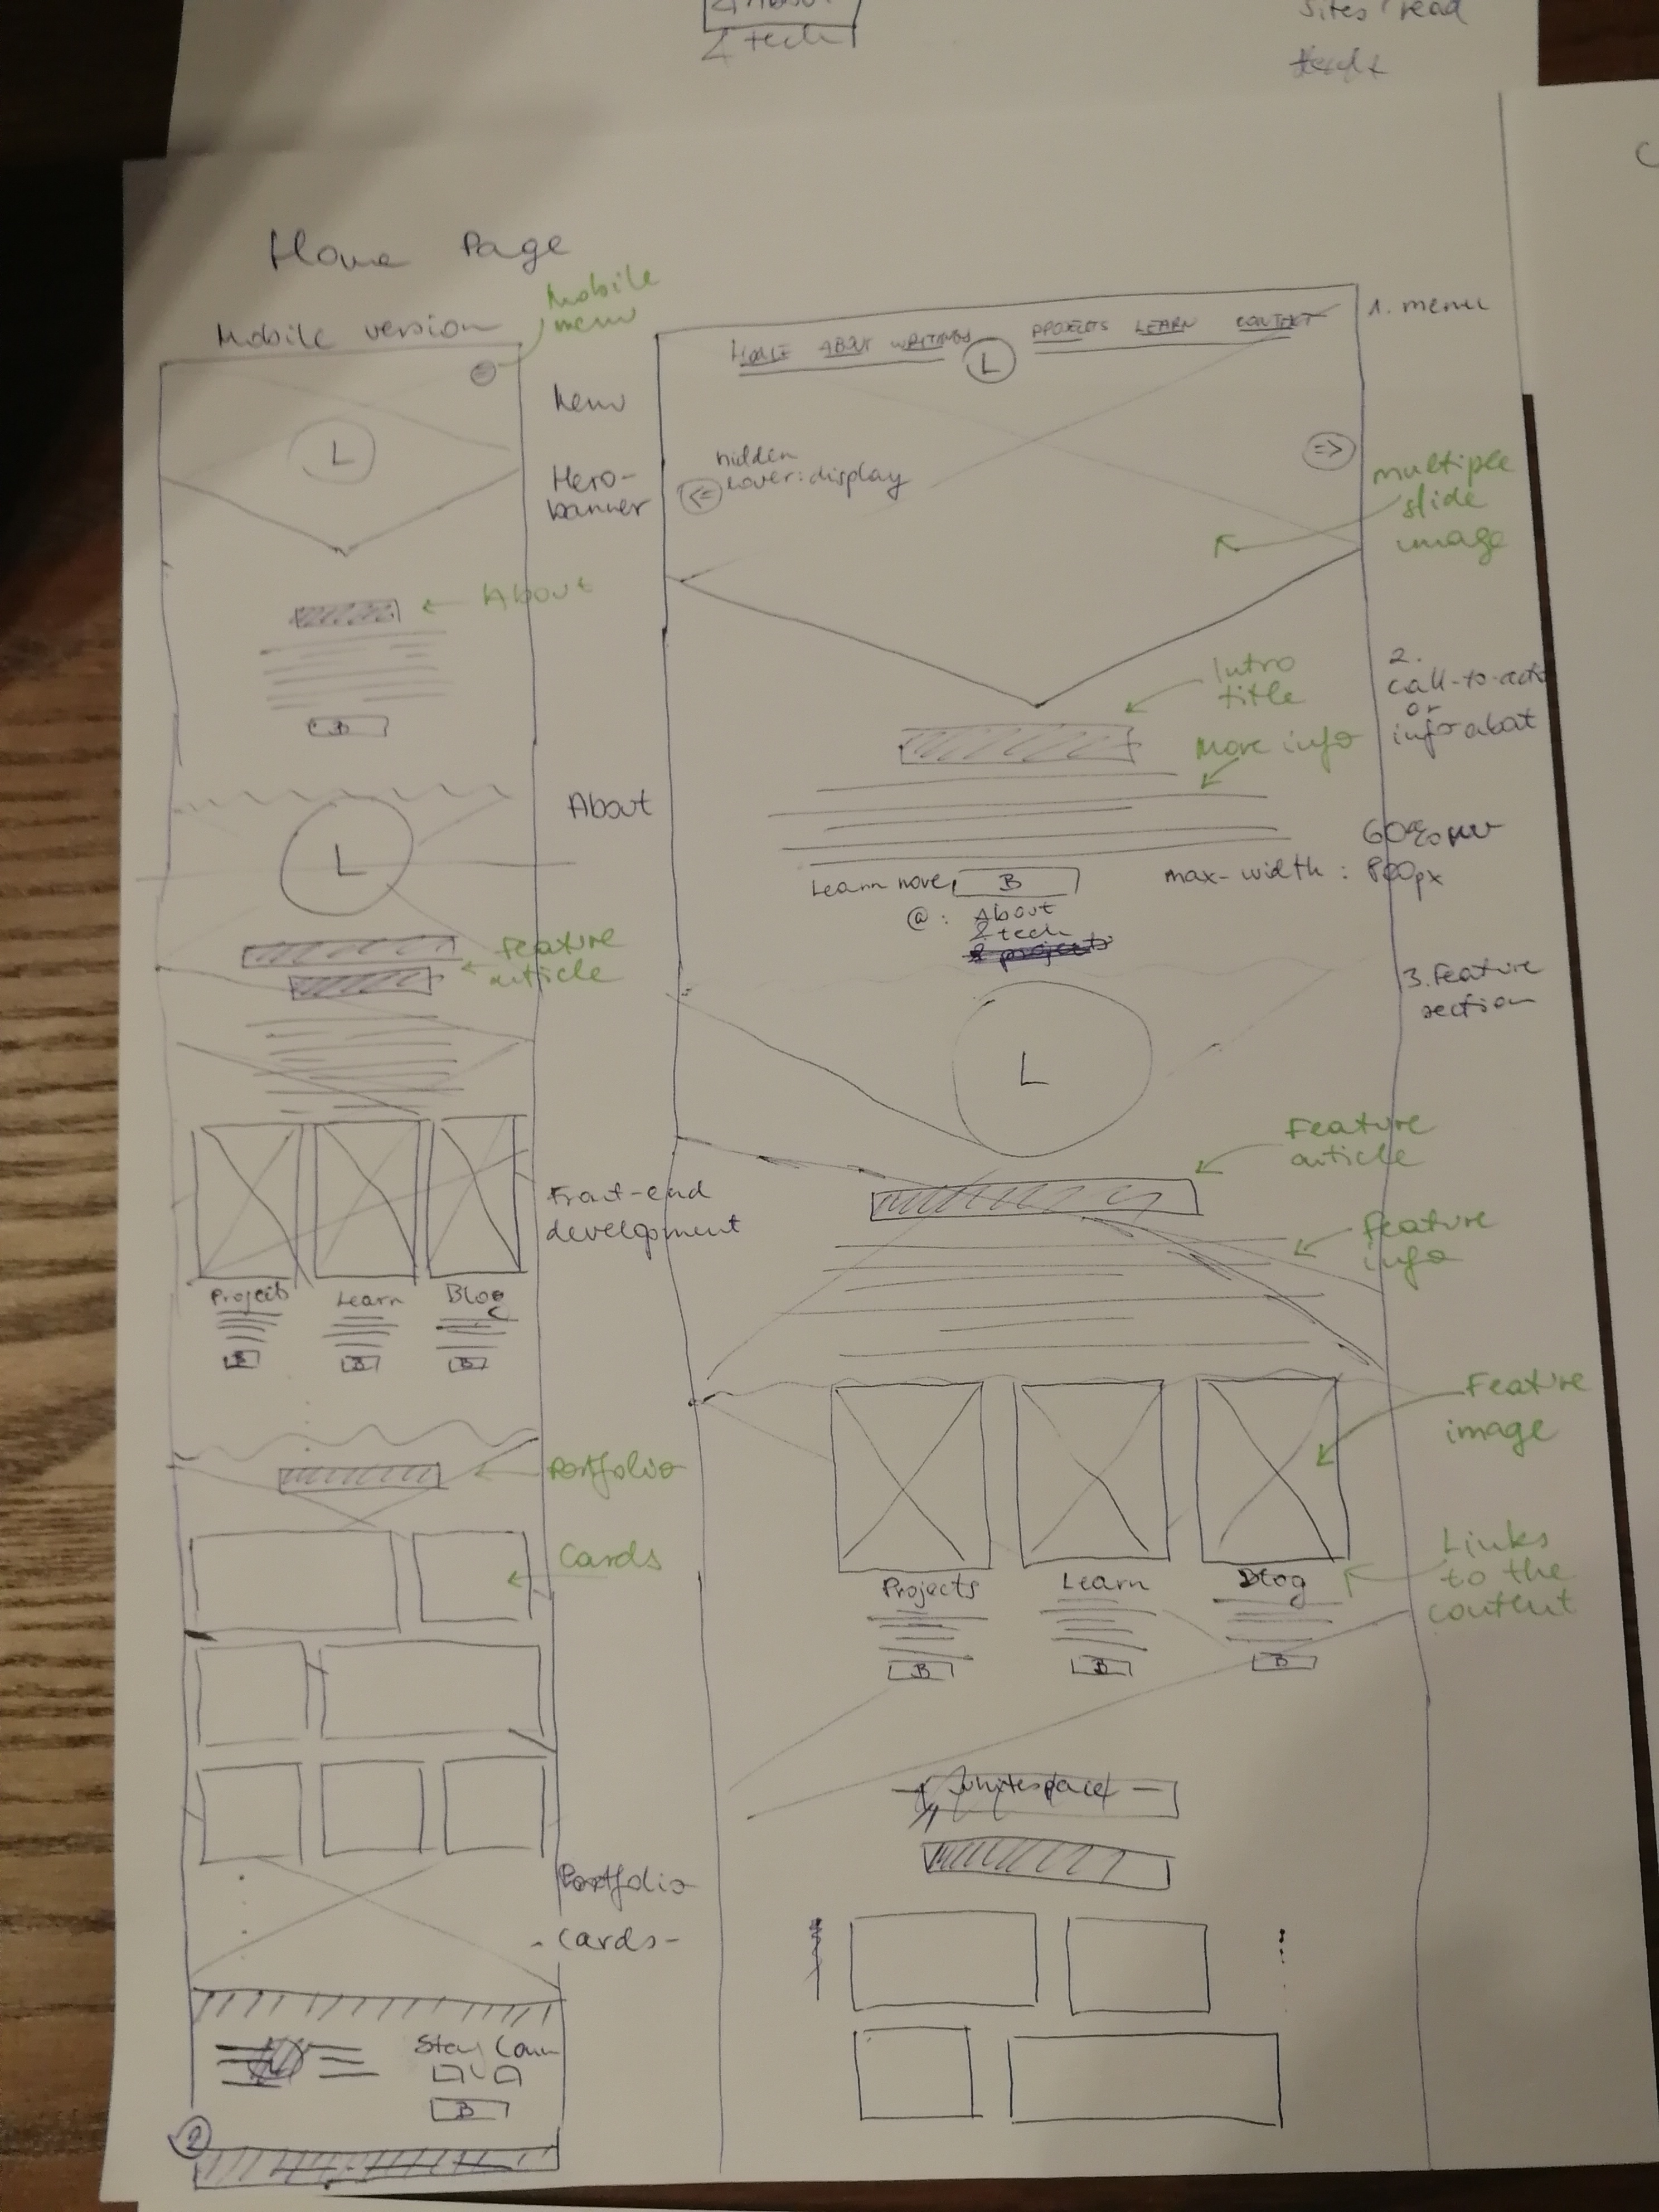 & tech
Sites read
Home Page
Mobile version
Mobile
menu
L
Menu
Hero-
banner
About
B
About
L
Feature
article
Front-end
development
Projects Learn Blog
B B B
Portfolio
Cards
Portfolio
cards-
Stay Conn
B
2
HOME ABOUT WRITINGS L PROJECTS LEARN CONTACT
1. menu
hidden
hover: display
<=
=>
multiple
slide
image
Intro
title
More info
2.
call-to-acti
or
info abat
60%
max-width : 800px
Learn more, B
@ : About
& tech
& projects
3. Feature
section
L
Feature
article
Feature
info
Feature
image
Projects Learn Blog
B B B
Links
to the
content
whitespace